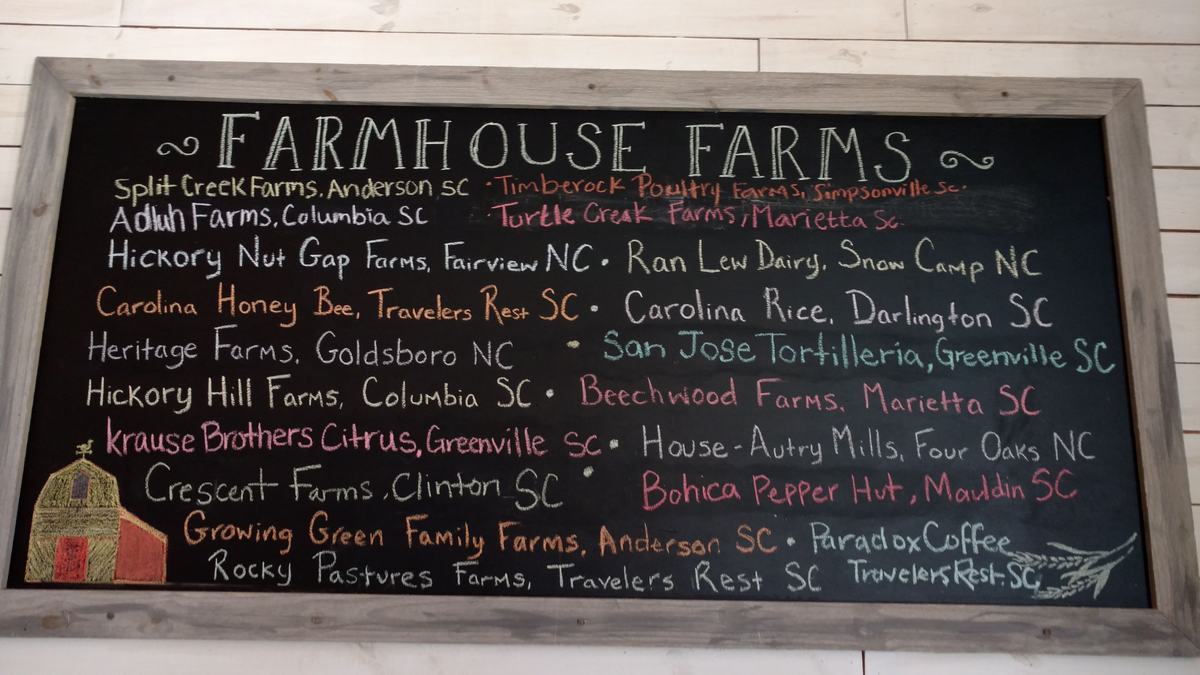 ~ FARMHOUSE FARMS ~
Split Creek Farms, Anderson SC · Timberock Poultry Farms, Simpsonville SC.
Adluh Farms, Columbia SC · Turtle Creek Farms, Marietta SC
Hickory Nut Gap Farms, Fairview NC · Ran Lew Dairy, Snow Camp NC
Carolina Honey Bee, Travelers Rest SC · Carolina Rice, Darlington SC
Heritage Farms, Goldsboro NC · San Jose Tortilleria, Greenville SC
Hickory Hill Farms, Columbia SC · Beechwood Farms, Marietta SC
Krause Brothers Citrus, Greenville SC · House-Autry Mills, Four Oaks NC
Crescent Farms, Clinton SC · Bohica Pepper Hut, Mauldin SC
Growing Green Family Farms, Anderson SC · Paradox Coffee
Rocky Pastures Farms, Travelers Rest SC Travelers Rest. SC